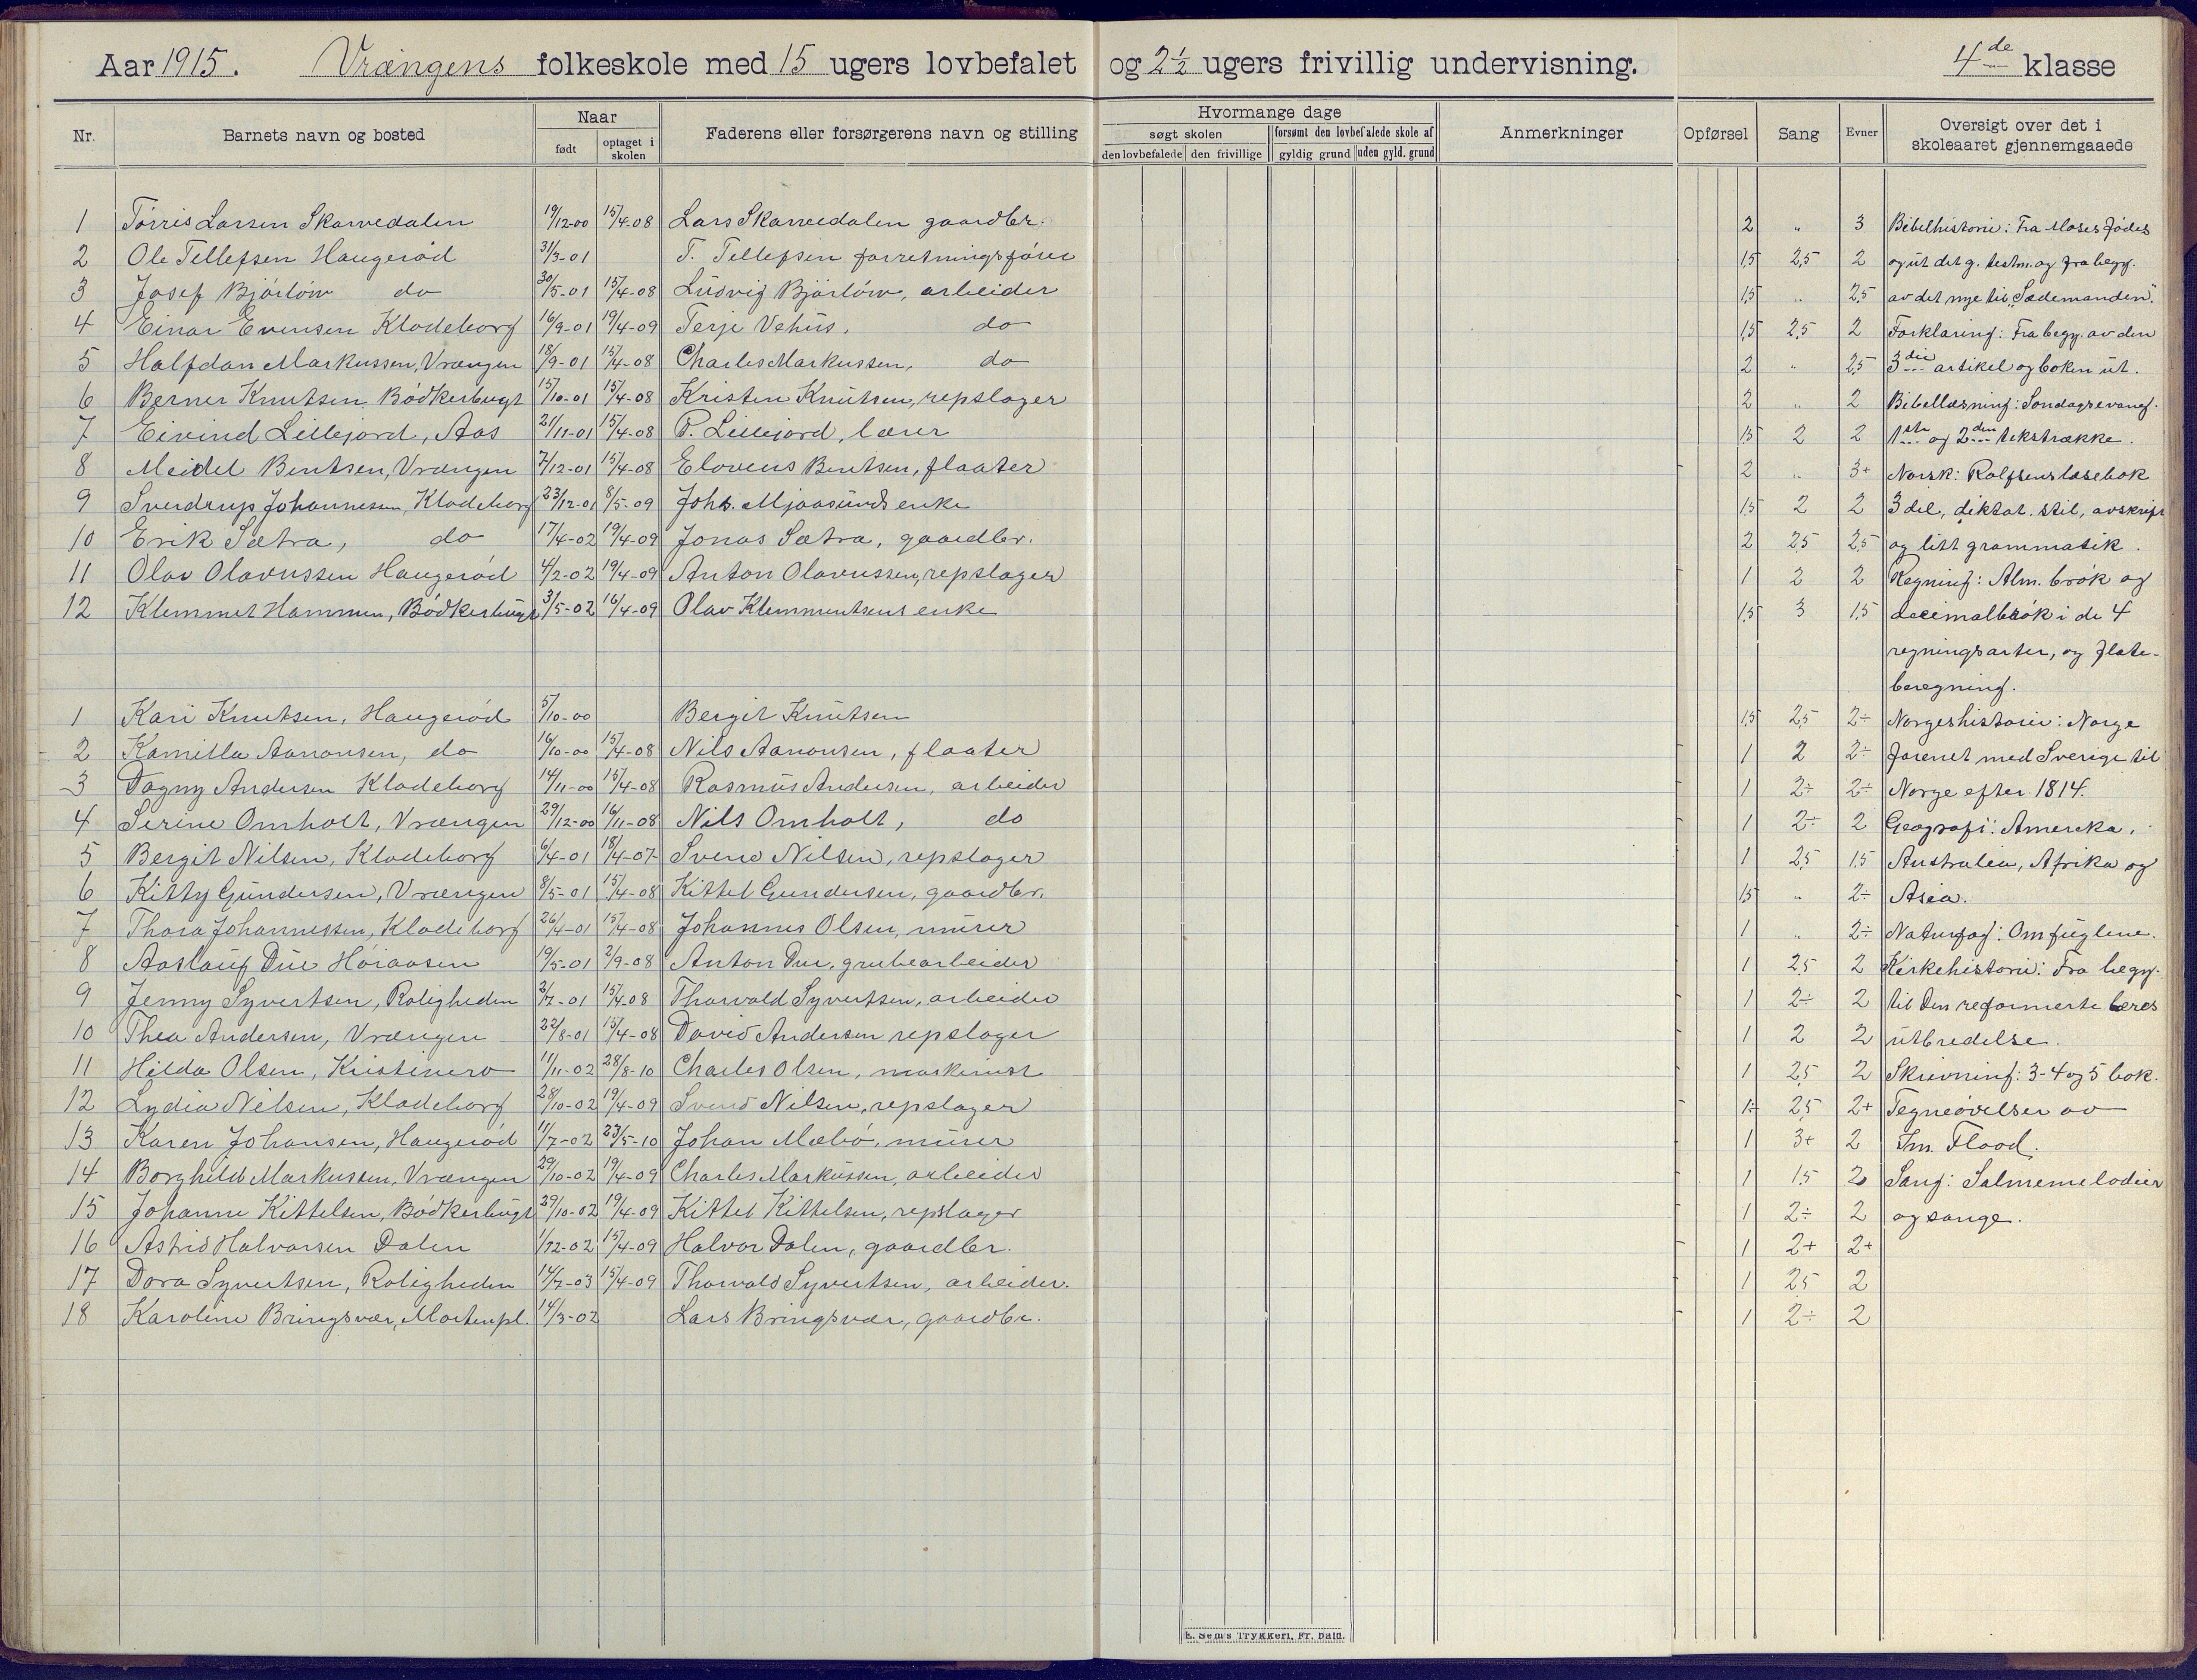 Aar 1915. Vrængens folkeskole med 15 ugers lovbefalet og 2 1/2 ugers frivillig undervisning. 4de klasse
Nr. Barnets navn og bosted Naar født optaget i skolen Faderens eller forsørgerens navn og stilling Hvormange dage søgt skolen den lovbefalede den frivillige forsømt den lovbefalede skole af gyldig grund uden gyld. grund Anmerkninger Opførsel Sang Evner Oversigt over det i skoleaaret gjennemgaaede
1 Tørris Larsen Skarvedalen 19/12-00 15/4-08 Lars Skarvedalen gaardbr. 2 " 3 Bibelhistorie: Fra Moses fødes
2 Ole Tellefsen Haugerød 31/3-01 T. Tellefsen forretningsfører 1,5 2,5 2 og ut det g. testm. og fra begy.
3 Josef Bjørløw do 30/5-01 15/4-08 Ludvig Bjørløw, arbeider 1,5 " 2,5 av det nye til "Sædemanden".
4 Einar Evensen Klodeborg 16/9-01 19/4-09 Terje Vehus, do 1,5 2,5 2 Forklaring: Fra begy. av den
5 Halfdan Markussen, Vrængen 18/9-01 15/4-08 Charles Markussen, do 2 " 2,5 3die artikel og boken ut.
6 Berner Knutsen Bødkerbugt 15/10-01 15/4-08 Kristen Knutsen, repslager 2 " 2 Bibellæsning: Søndagsevang.
7 Eivind Lillejord, Aas 21/11-01 15/4-08 P. Lillejord, lærer 1,5 2 2 1ste og 2den tekstrække.
8 Meidel Bentsen, Vrængen 7/12-01 15/4-08 Elovius Bentsen, flaater 2 " 3+ Norsk: Rolfsens læsebok
9 Sverdrup Johannesen, Klodeborg 23/12-01 8/5-09 Johs. Mjaasunds enke 1,5 2 2 3 del, diktat. stil, avskrift
10 Erik Sætra, do 17/4-02 19/4-09 Jonas Sætra, gaardbr. 2 2,5 2,5 og litt grammatik.
11 Olav Olavussen Haugerød 4/2-02 19/4-09 Anton Olavussen, repslager 1 2 2 Regning: Alm. brøk og
12 Klemmet Hammen, Bødkerbugt 3/5-02 16/4-09 Olav Klemmentsens enke 1,5 3 1,5 decimalbrøk i de 4
regningsarter, og flate-
beregning.
1 Kari Knutsen, Haugerød 5/10-00 Bergit Knutsen 1,5 2,5 2÷ Norgeshistorie: Norge
2 Kamilla Aanonsen, do 16/10-00 15/4-08 Nils Aanonsen, flaater 1 2 2÷ forenet med Sverige til
3 Dagny Andersen Klodeborg 14/11-00 15/4-08 Rasmus Andersen, arbeider 1 2÷ 2÷ Norge efter 1814.
4 Serine Omholt, Vrængen 29/12-00 16/11-08 Nils Omholt, do 1 2÷ 2 Geografi: Amerika,
5 Bergit Nilsen, Klodeborg 6/4-01 18/4-07 Svend Nilsen, repslager 1 2,5 1,5 Australia, Afrika og
6 Kitty Gundersen, Vrængen 8/5-01 15/4-08 Kittel Gundersen, gaardbr. 1,5 " 2÷ Asia.
7 Thora Johannessen, Klodeborg 26/4-01 15/4-08 Johannes Olsen, murer 1 " 2÷ Naturfag: Om fuglene.
8 Aaslaug Due Høiaasen 19/5-01 2/9-08 Anton Due, grubearbeider 1 2,5 2 Kirkehistorie: Fra begy.
9 Jenny Syvertsen, Roligheden 2/7-01 15/4-08 Thorvald Syvertsen, arbeider 1 2÷ 2 til Den reformerte læres
10 Thea Andersen, Vrængen 22/8-01 15/4-08 David Andersen repslager 1 2 2 utbredelse.
11 Hilda Olsen, Kristinero 11/11-02 28/8-10 Charles Olsen, maskinist 1 2,5 2 Skrivning: 3-4 og 5 bok.
12 Lydia Nilsen, Klodeborg 28/10-02 19/4-09 Svend Nilsen, repslager 1÷ 2,5 2+ Tegneøvelser av
13 Karen Johansen, Haugerød 11/7-02 23/5-10 Johan Mæbø, murer 1 3+ 2 Im. Flood.
14 Borghild Markussen, Vrængen 29/10-02 19/4-09 Charles Markussen, arbeider 1 1,5 2 Sang: Salmemelodier
15 Johanne Kittelsen, Bødkerbugt 29/10-02 19/4-09 Kittel Kittelsen, repslager 1 2÷ 2 og sange.
16 Astrid Halvorsen Dalen 1/12-02 15/4-09 Halvor Dalen, gaardbr. 1 2+ 2+
17 Dora Syvertsen, Roligheden 14/7-03 15/4-09 Thorvald Syvertsen, arbeider. 1 2,5 2
18 Karoline Bringsvær, Mortenpl. 14/3-02 Lars Bringsvær, gaardbr. 1 2÷ 2
E. Sem's Trykkeri, Fr. hald.